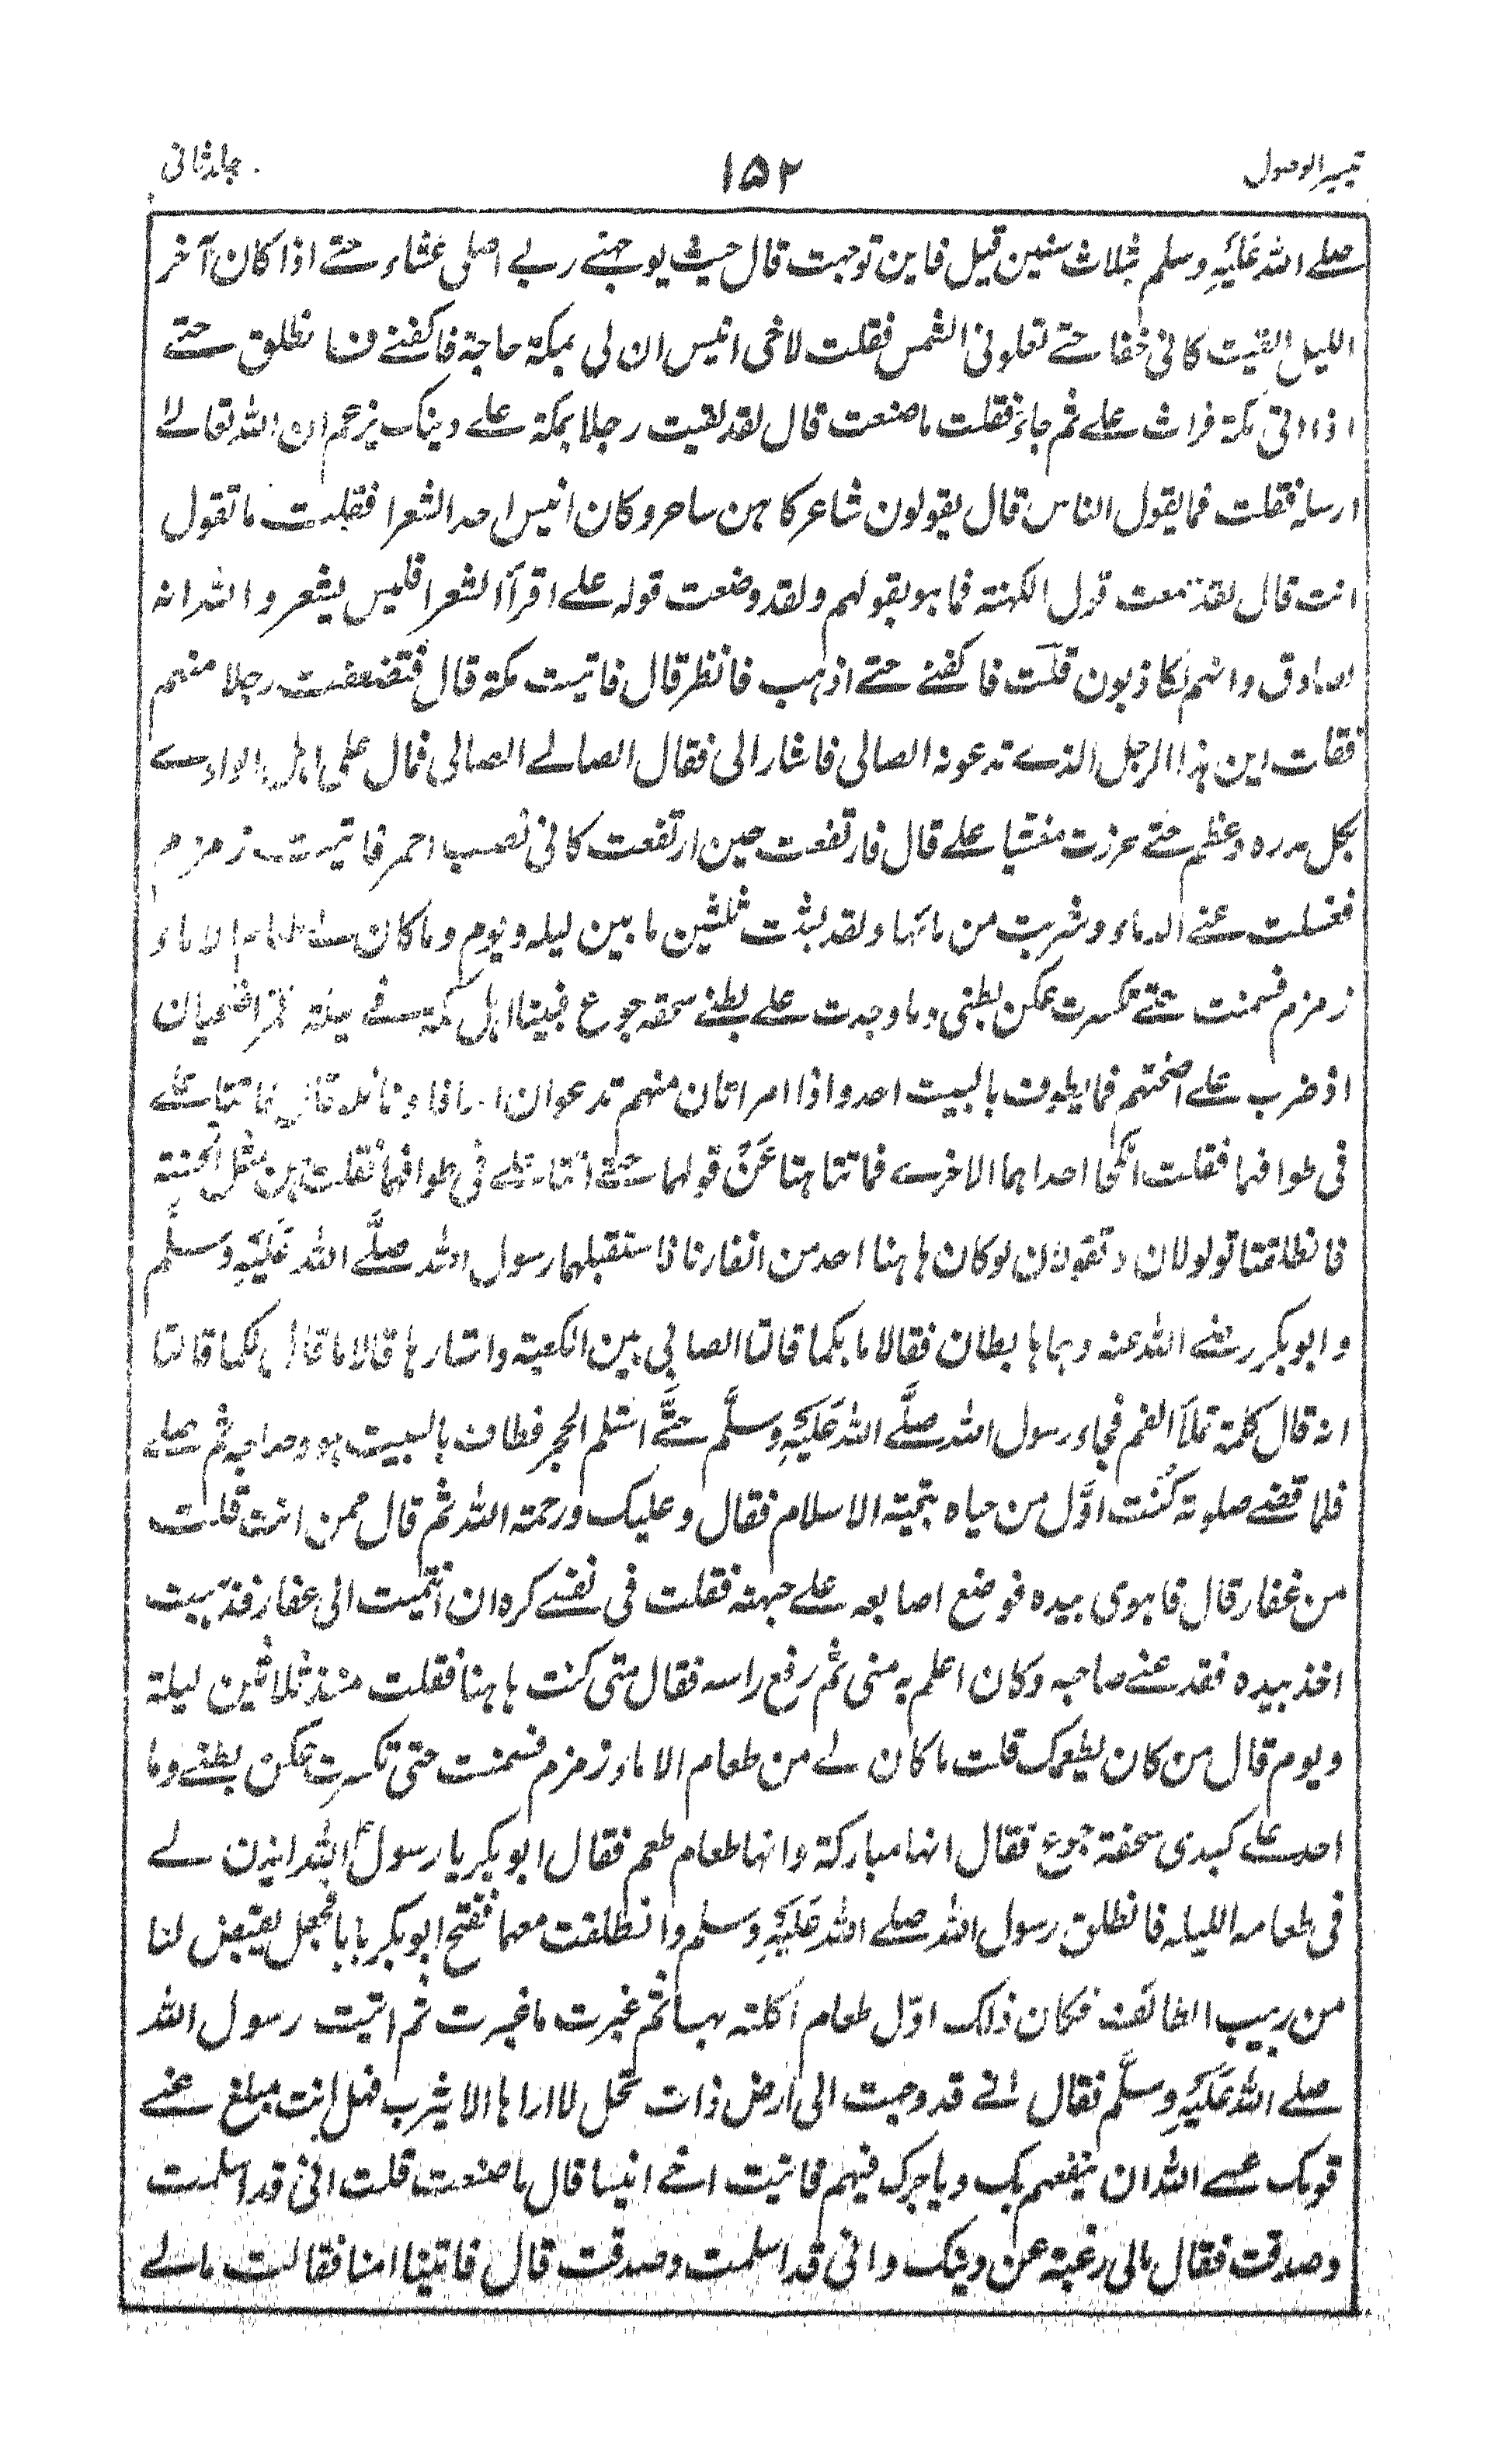 تیسیر الوصول ۱۵۲ جلد ثانی
صلے اللہ عَلَیْہِ وسلم بثلاث سنین قیل فاین توجہت قال حیث یوجہنے ربے اصلی عشاء حتے اذا کان آخر
اللیل القیت کانی خفا حتے تعلونی الشمس فقلت لاخی انیس ان لی بمکۃ حاجۃ فاکفنے فانطلق حتے
اذا اتی مکۃ فراث علے ثم جاء فقلت ما صنعت قال لقد لقیت رجلا بمکۃ علے دینک یزعم ان اللہ تعالےٰ
ارسلہ فقلت فما یقول الناس قال یقولون شاعر کاہن ساحر و کان انیس احد الشعرا فقلت ما تقول
انت قال لقد سمعت قول الکہنۃ فما ہو بقولہم ولقد وضعت قولہ علے اقرأ الشعرا فلیس بشعر و اللہ انہ
لصادق و انہم لکاذبون قلت فاکفنے حتے اذہب فانظر قال فاتیت مکۃ قال فتضعفت رجلا منہم
فقلت این ہذا الرجل الذے تدعونہ الصابی فاشار الی فقال الصابے الصابی فمال علی اہل الوادے
بکل مدرہ و عظم حتے خررت مغشیا علے قال فارتفعت حین ارتفعت کانی نصب احمر فاتیت زمزم
فغسلت عنے الدماء و شربت من مائہا ولقد لبثت ثلثین ما بین لیلہ و یوم و ما کان لے طعام الا ماء
زمزم فسمنت حتے تکسرت عکن بطنی و ما وجدت علے بطنے سحفہ جوع فبینا اہل مکۃ فے لیلۃ قمر اضحیان
اذ ضرب علے اصمختہم فما یطوف بالبیت احد و اذا امراتان منہم تدعوان اسافا و نائلہ قال فاتتا علے
فی طوافہما فقلت انکحا احداہما الاخرے فما تناہتا عَنْ قولہما حتے اتتا علے فی طوافہما فقلت ہن مثل الخشبۃ
فانطلقتا تولولان و تقولان لو کان ہاہنا احد من انفارنا فاستقبلہما رسول اللہ صلَّے اللہ عَلَیْہِ وَسلَّم
و ابو بکر رضے اللہ عنہ و ہما ہابطان فقالا ما بکما قالتا الصابی بین الکعبۃ و استارہا قالا ما قال لکما قالتا
انہ قال کلمۃ تملأ الفم فجاء رسول اللہ صلَّے اللہ عَلَیْہِ وَسلَّم حتَّے استلم الحجر فطاف بالبیت ہو و صاحبہ ثم صلے
فلما قضے صلوتہ کُنت اوّل من حیاہ بتحیۃ الاسلام فقال و علیک و رحمۃ اللہ ثم قال ممن انت قلت
من غفار قال فاہوی بیدہ فوضع اصابعہ علے جبہتہ فقلت فی نفسے کرہ ان انتمیت الی غفار فذہبت
اخذ بیدہ فقدعنے صاحبہ و کان اعلم بہ منی ثم رفع راسہ فقال متی کنت ہاہنا فقلت منذ ثلاثین لیلۃ
و یوم قال من کان یطعمک قلت ما کان لے من طعام الا ماء زمزم فسمنت حتی تکسرت عکن بطنے و ما
اجد علے کبدی سحفۃ جوع فقال انہا مبارکۃ و انہا طعام طعم فقال ابو بکر یا رسول اللہ ایذن لے
فی طعامہ اللیلہ فانطلق رسول اللہ صلے اللہ عَلَیْہِ وَسلم و انطلقت معہما ففتح ابو بکر بابا فجعل یقبض لنا
من زبیب الطائف فکان ذلک اوّل طعام اکلتہ بہا ثم غبرت ما غبرت ثم اتیت رسول اللہ
صلے اللہ عَلَیْہِ وسلَّم فقال انے قد وجہت الی ارض ذات نخل لا اراہا الا یثرب فہل انت مبلغ عنے
قومک عسے اللہ ان ینفعہم بک و یاجرک فیہم فاتیت اخے انیسا قال ما صنعت قلت انی قد اسلمت
و صدقت فقال مالی رغبۃ عن دینک و انی قد اسلمت و صدقت قال فاتینا امنا فقالت مالے